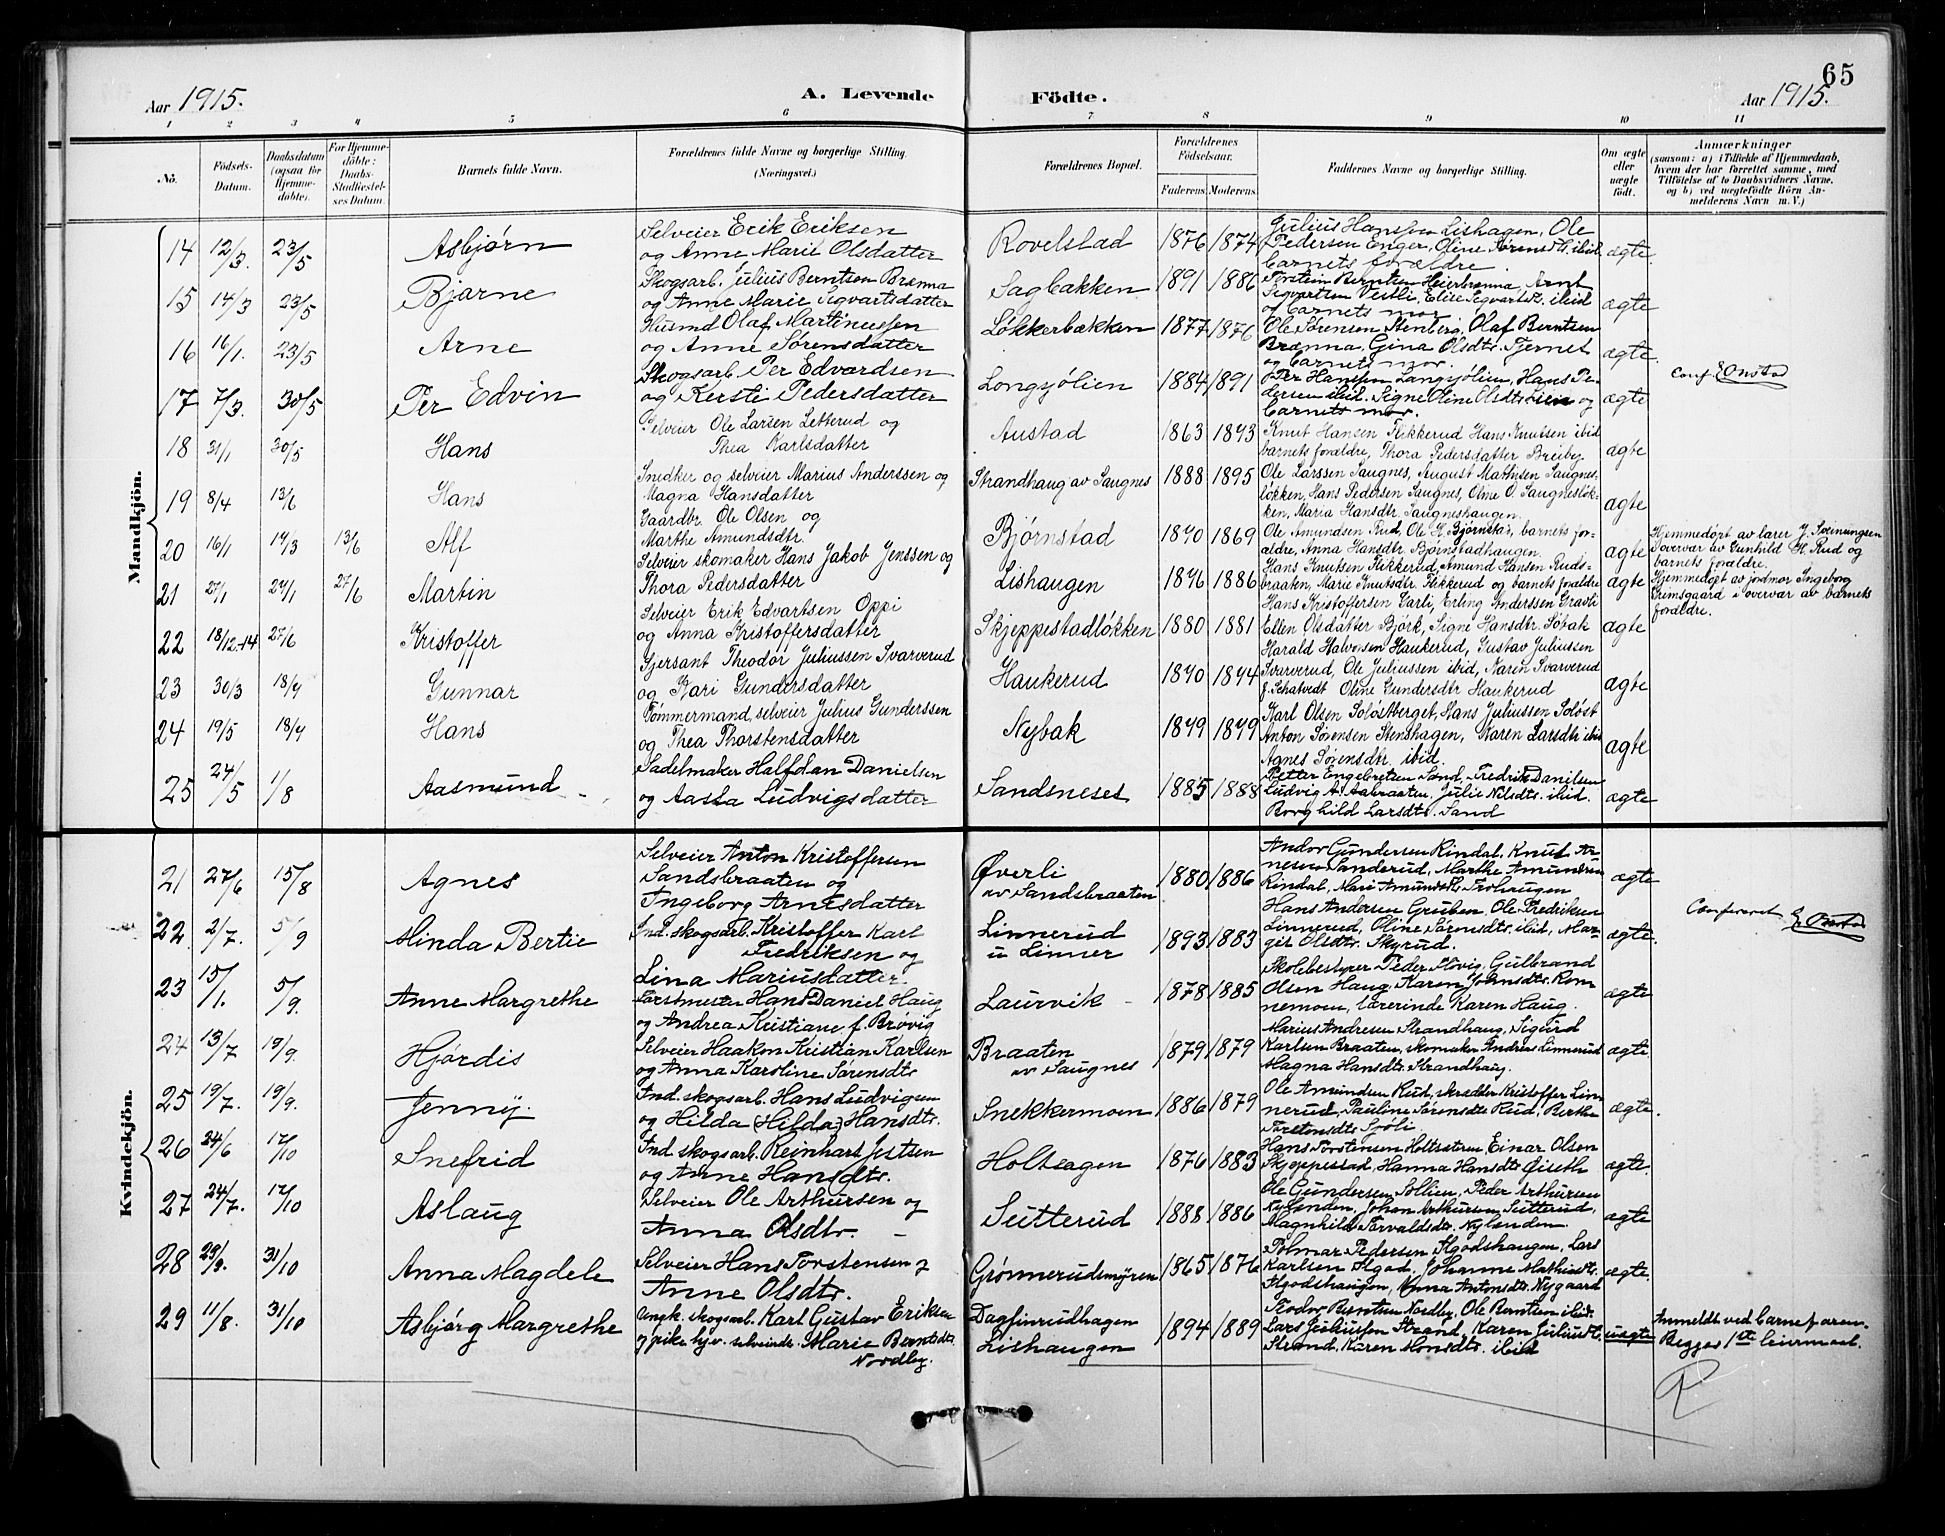 65
Aar 1915.
A. Levende Födte.
Aar 1915.
1 2 3 4 5 6 7 8 9 10 11
No.
Födsels-Datum.
Daabsdatum (ogsaa for Hjemme-döbte).
For Hjemme-döbte: Daabs-Stadfæstel-ses Datum.
Barnets fulde Navn.
Forældrenes fulde Navne og borgerlige Stilling. (Næringsvei.)
Forældrenes Bopæl.
Forældrenes Födselsaar.
Faderens. Moderens.
Faddernes Navne og borgerlige Stilling.
Om ægte eller uægte födt.
Anmærkninger
(saasom: a) i Tilfælde af Hjemmedaab,
hvem der har forrettet samme, med
Tilföielse af to Daabsvidners Navne,
og b) ved uægtefödte Börn An-
melderens Navn m. V.)
Mandkjön.
14 12/3. 23/5 Asbjørn Selveier Erik Eriksen og Anne Marie Olsdatter Rovelstad 1876 1874 Julius Hanssen Lishagen, Ole Pedersen Enger, Oline Sørensdt. ibid. barnets forældre. ægte.
15 14/3 23/5 Bjarne Skogsarb. Julius Berntsen Brænna og Anne Marie Sigvartsdatter Sagbakken 1891 1886 Torstein Berntsen Heierbrænna, Arnt Sigvartsen Vestli, Elise Sigvartsd. ibid og barnets mor ægte
16 16/1. 23/5 Arne Husmd Olaf Martinussen og Anne Sørensdatter Løkkerbækken 1877 1876 Ole Sørensen Stenberg, Olaf Berntsen Brænna, Gina Olsdtr. Tjernet og barnets mor. ægte.
17 7/3. 30/5 Per Edvin Skogsarb. Per Edvardsen og Kersti Pedersdatter Longsjölien 1884 1891 Per Hanssen Langsjölien, Hans Pedersen ibid. Signe Oline Olsdtr og barnets mor. ægte
18 31/1 30/5 Hans Selveier Ole Larsen Letterud og Thea Karlsdatter Austad 1863 1873 Knut Hansen Flikkerud Hans Knutsen ibid barnets forældre, Thora Pedersdatter Breiby ægte
19 8/4 13/6 Hans Snedker og selveier Marius Anderssen og Magna Hansdatter Strandhaug av Saugnes 1888 1895 Ole Larssen Saugnes, August Mathisen Saugnesløkken, Hans Pedersen Saugnes, Oline O. Saugnesløkken, Maria Hansdtr. Saugneshaugen. ægte
20 16/1 14/3 13/6 Alf Gaardbr. Ole Olsen og Marthe Amundsdtr. Bjørnstad 1870 1869 Ole Amundsen Rud, Ole H. Bjørnstad, barnets forældre, Anna Hansdtr. Bjørnstadhaugen. ægte Hjemmedøpt av lærer J. Sveinungsen i overvær av Gunhild H. Rud og barnets forældre.
21 27/1 27/1 27/6 Martin Selveier skomaker Hans Jakob Jenssen og Thora Pedersdatter Lishaugen 1876 1886 Hans Knutsen Flikkerud, Amund Hansen Rudsbraaten, Marie Knutsdtr. Flikkerud og barnets forældre ægte Hjemmedøpt av jordmor Ingeborg Grimsgaard i overvær av barnets forældre.
22 18/12-14 27/6 Kristoffer Selveier Erik Edvartsen Oppi og Anna Kristoffersdatter Skjeppestadløkken 1880 1881 Hans Kristoffersen Carli, Erling Anderssen Gravli Ellen Olsdatter Bjørk, Signe Hansdtr. Søbak ægte
23 30/3 18/7 Gunnar Sjersant Theodor Juliussen Svarverud og Kari Gundersdatter Haukerud 1870 1874 Harald Halvorsen Haukerud, Gustav Juliussen Svarverud, Ole Juliussen ibid, Karen Svarverud f. Schatvedt Oline Gundersdtr Haukerud ægte
24 19/5 18/7 Hans Tømmermand, selveier Julius Gunderssen og Thea Thorstensdatter Nybak 1879 1879 Karl Olsen Soløstberget, Hans Juliussen Soløst Anton Sørensen Stenshagen, Karen Larsdtr ibid Agnes Sørensdtr. ibid. ægte
25 24/5 1/8 Aasmund Sadelmaker Halfdan Danielsen og Aasta Ludvigsdatter Sandsneset 1885 1888 Petter Engebretsen Sand, Fredrik Danilsen Ludvig A. Aabraaten, Julie Nilsdtr. ibid. Borghild Larsdtr. Sand ægte
Conf. E Onstad
Kvindekjön.
21 27/6 15/8 Agnes Selveier Anton Kristoffersen Sandsbraaten og Ingeborg Arnesdatter Øverli av Sandsbraaten 1880 1886 Andor Gundersen Rindal, Knut Arnesen Sanderud, Marthe Amundsen Rindal, Mari Amundsdt. Trohaugen ægte
22 2/7. 5/9 Minda Bertie Ind. skogsarb. Kristoffer Karl Fredriksen og Lina Mariusdatter Linnerud u Linner 1893 1883 Hans Andersen Gruben, Ole Fredriksen Linnerud, Oline Sørensdtr. ibid, Margit Olsdtr. Skyrud. ægte. Confereret E Onstad
23 15/1. 5/9. Anne Margrethe Forstmester Hans Daniel Haug og Andrea Kristiane f. Brøvig Laurvik 1878 1885 Skolebestyrer Peder Hovig, Gulbrand Olsen Haug, Karen Johnsdtr. Romnemoen, lærerinde Karen Haug ægte
24 13/7 19/9. Hjørdis Selveier Haakon Kristian Karlsen og Anna Karoline Sørensdtr Braaten av Saugnes 1879 1879 Marius Andresen Strandhaug, Sigurd Karlsen Braaten, skomaker Andreas Linnerud Magna Hansdtr. Strandhaug. ægte
25 19/7. 19/9. Jenny Ind. skogsarb. Hans Ludvigsen og Hilda (Hilda) Hansdtr. Snekkermoen 1886 1879 Ole Amundsen Rud, skrædder Kristoffer Linnerud, Pauline Sørensdtr Rud, Berthe Torstensdtr Sjøli. ægte.
26 24/6 17/10 Snefrid Ind. skogsarb. Reinhart Jestsen og Anne Hansdtr. Holthagen 1876 1883 Hans Torstensen Holtsæteren, Einar Olsen Skjeppestad, Hanna Hansdtr. Øiseth ægte.
27 24/7. 17/10 Aslaug Selveier Ole Arthursen og Anna Olsdtr. Sutterud 1888 1886 Ole Gundersen Sollien, Peder Arthursen Nylenden, Johan Arthursen Sutterud, Magnhild Torvaldsdtr. Nylenden. ægte
28 29/8. 31/10 Anna Magdele Selveier Hans Torstensen og Anne Olsdtr. Grønnerudsmyren 1865 1876 Polmar Pedersen Algodshaugen, Lars Karlsen Algod, Johanne Mathisdtr. Algodshaugen, Anna Antonsdtr. Nygaard ægte.
29 11/8. 31/10 Asbjørg Margrethe ungk. skogsarb. Karl Gustav Eriksen og pike hjv. selveinde Marie Berntsdtr. Nordby. Dagfinrudhagen Lishaugen 1894 1889 Teodor Berntsen Nordby, Ole Berntsen ibid. Lars Juliussen Strand, Karen Juliusdt. Strand, Karen Monsdtr. ibid uægte Anmeldt ved barnefaren. Begges 1ste leiermaal.
R